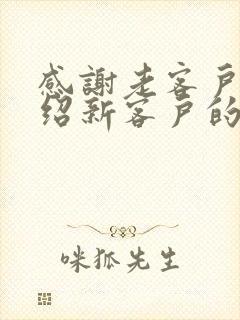 感謝老客戶
绍新客户的
咪狐先生